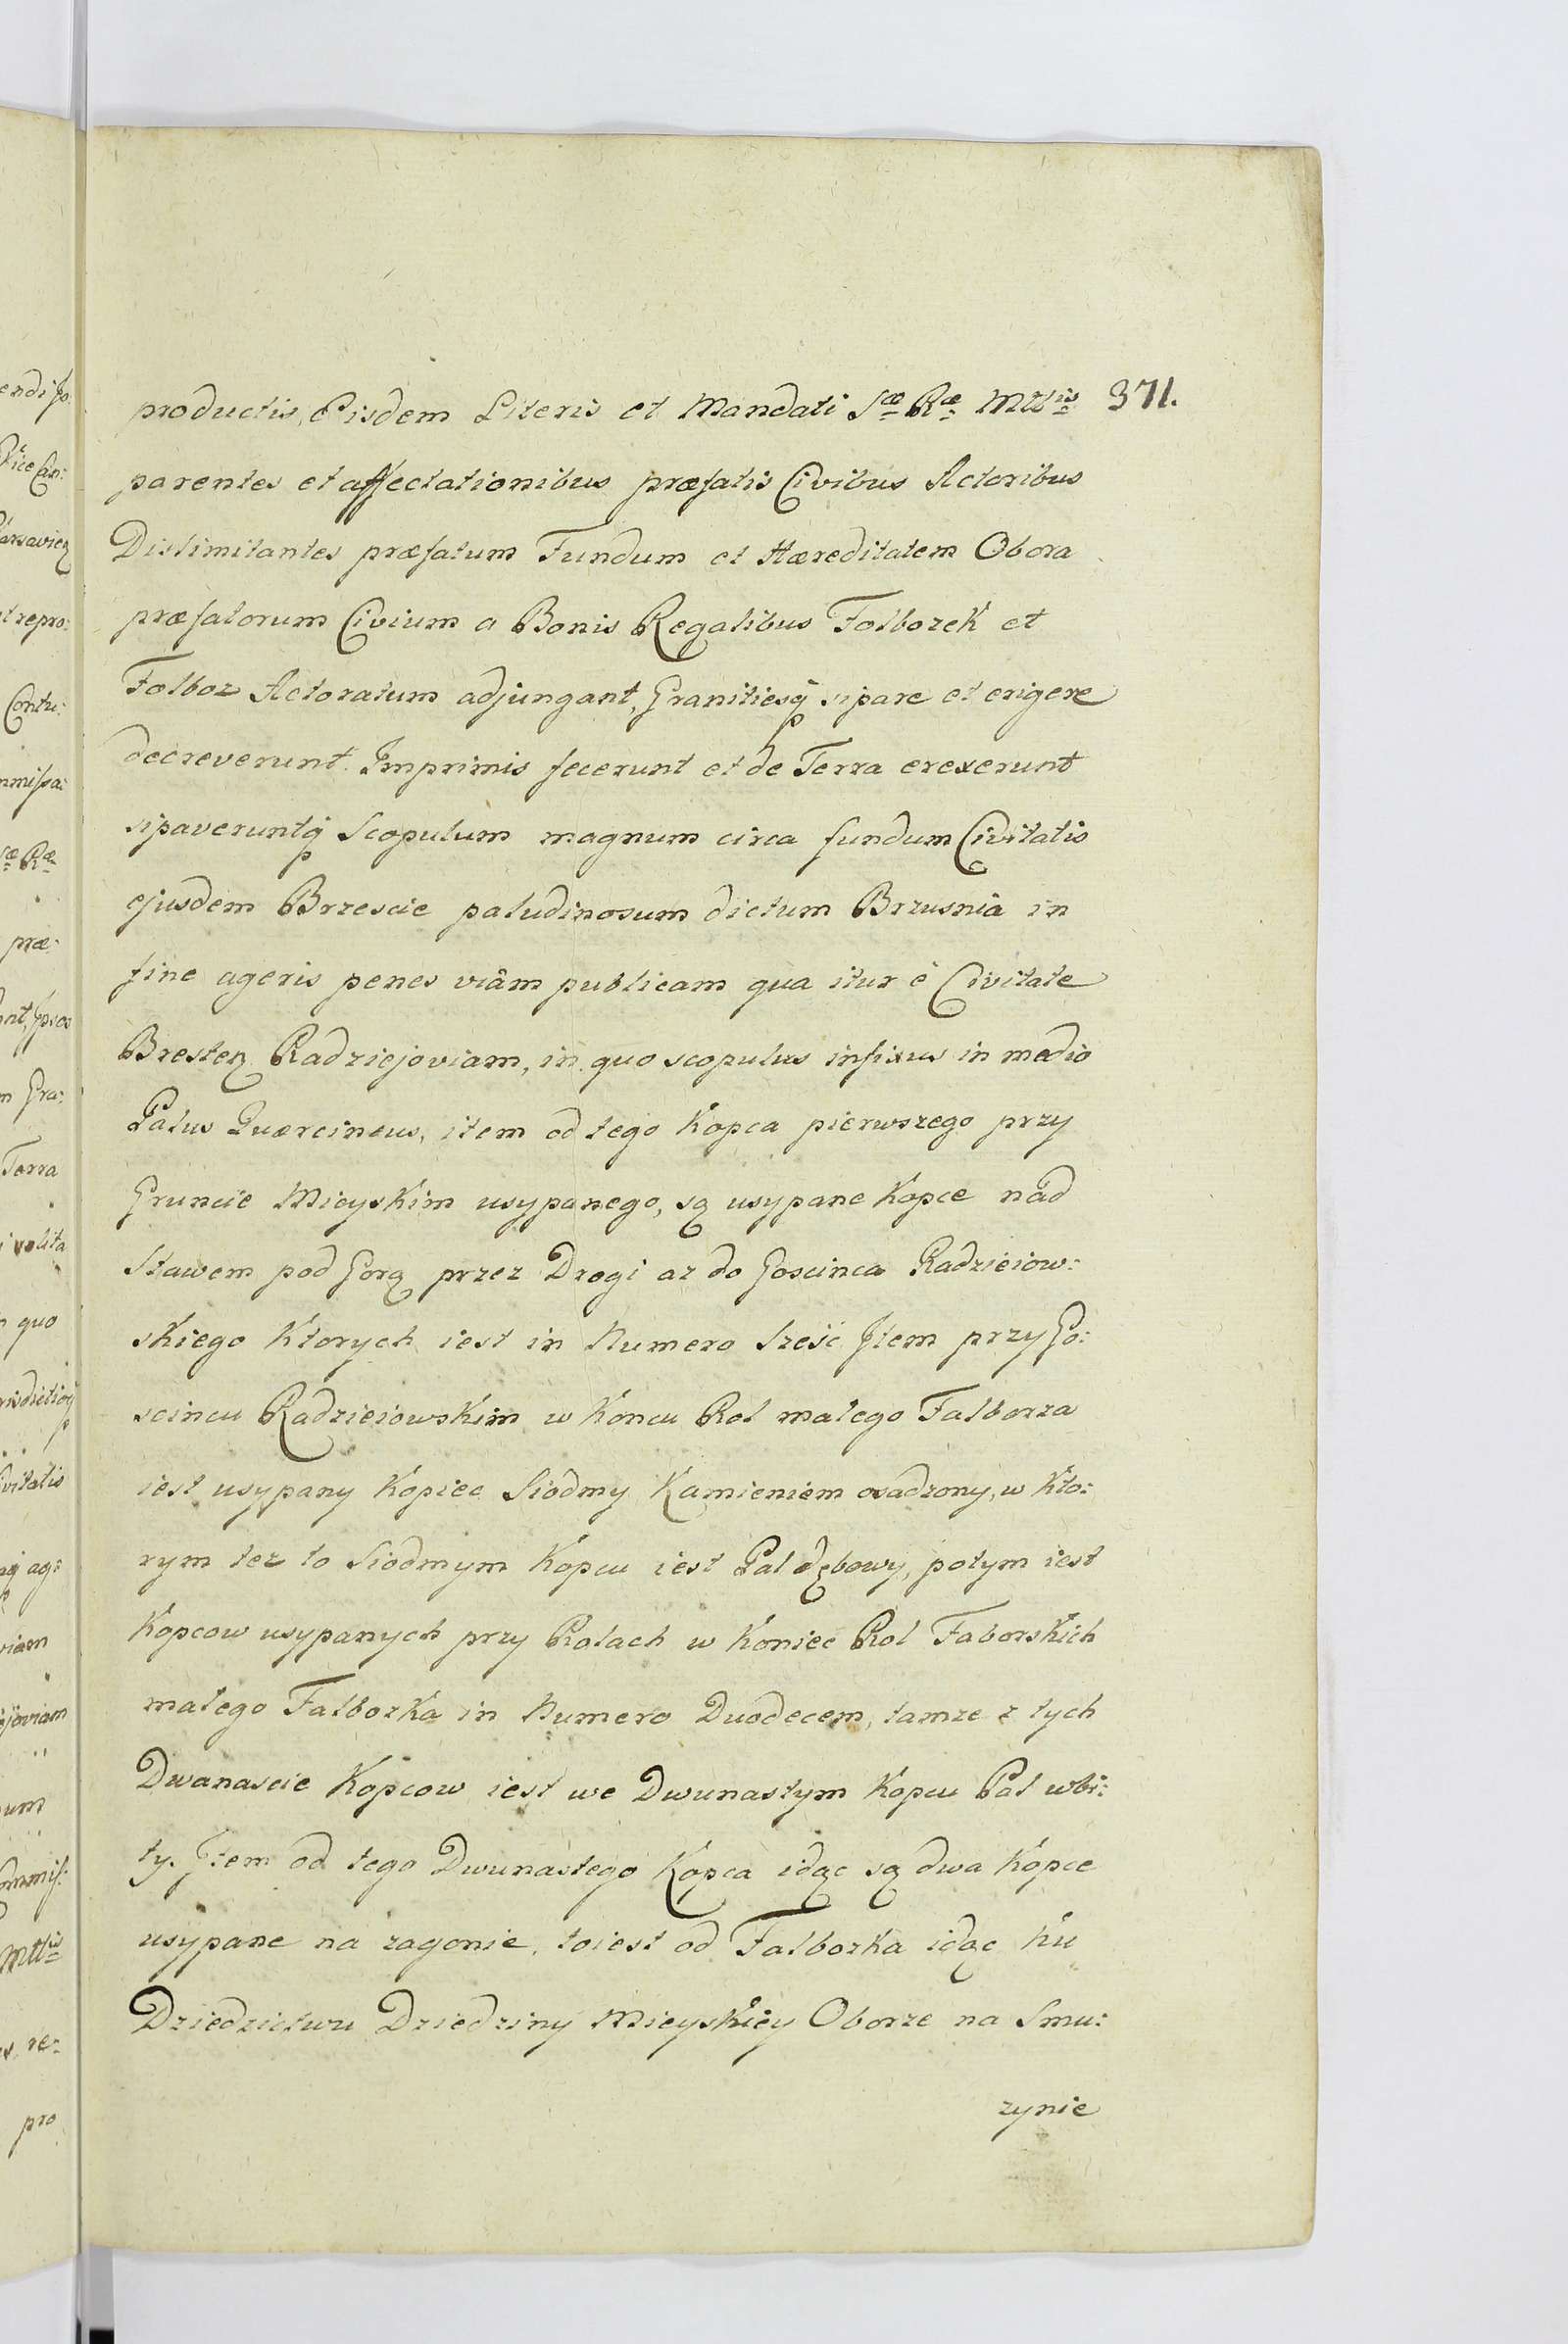 productis, Eisdem Literis et Mandati Sæ Ræ Mttis 371.
parentes et affectationibus præfatis Civibus Actoribus
Dislimitantes præfatum Fundum et Hæreditatem Obora
præfatorum Civium a Bonis Regalibus Folborek et
Folboz Actoratum adjungant, Granitiesq̃ sipare et erigere
decreverunt. Imprimis fecerunt et de Terra erexerunt
sipaveruntq̃ Scopulum magnum circa fundum Civitatis
ejusdem Brzescie paludinosum dictum Brzusnia in
fine ageris penes viâm publicam qua itur è Civitate
Bresten Radziejoviam, in quo scopulus infixus in medio
Palus Quærcineus, item od tego Kopca pierwszego przy
Gruncie Mieyskim usypanego, są usypane Kopce nad
Stawem pod Gorą przez Drogi az do Goscinca Radzieiow:
skiego Ktorych iest in Numero Sześć Item przy Go:
scincu Radzieiowskim w Koncu Rol małego Falborza
iest usypany Kopiec Siodmy Kamieniem osadzony, w Kto:
rym tez to Siodmym Kopcu iest Pal dębowy, potym iest
Kopcow usypanych przy Rolach w Koniec Rol Faborskich
małego Falborka in Numero Duodecem, tamze z tych
Dwanascie Kopcow iest we Dwunastym Kopcu Pal wbi:
ty. Item od tego Dwunastego Kopca idąc są dwa Kopce
usypane na zagonie, toiest od Falborka idąc ku
Dziedzictwu Dziedziny Mieyskiey Oborze na Smu:
zynie
endi
Vice Can:
arsavien
et repro:
Contu:
mmissa:
Sæ Ræ
præ:
m Gra:
Terra
volita
quo
vitatis
ag:
viam
joviam
um
Mttis
re:
pro